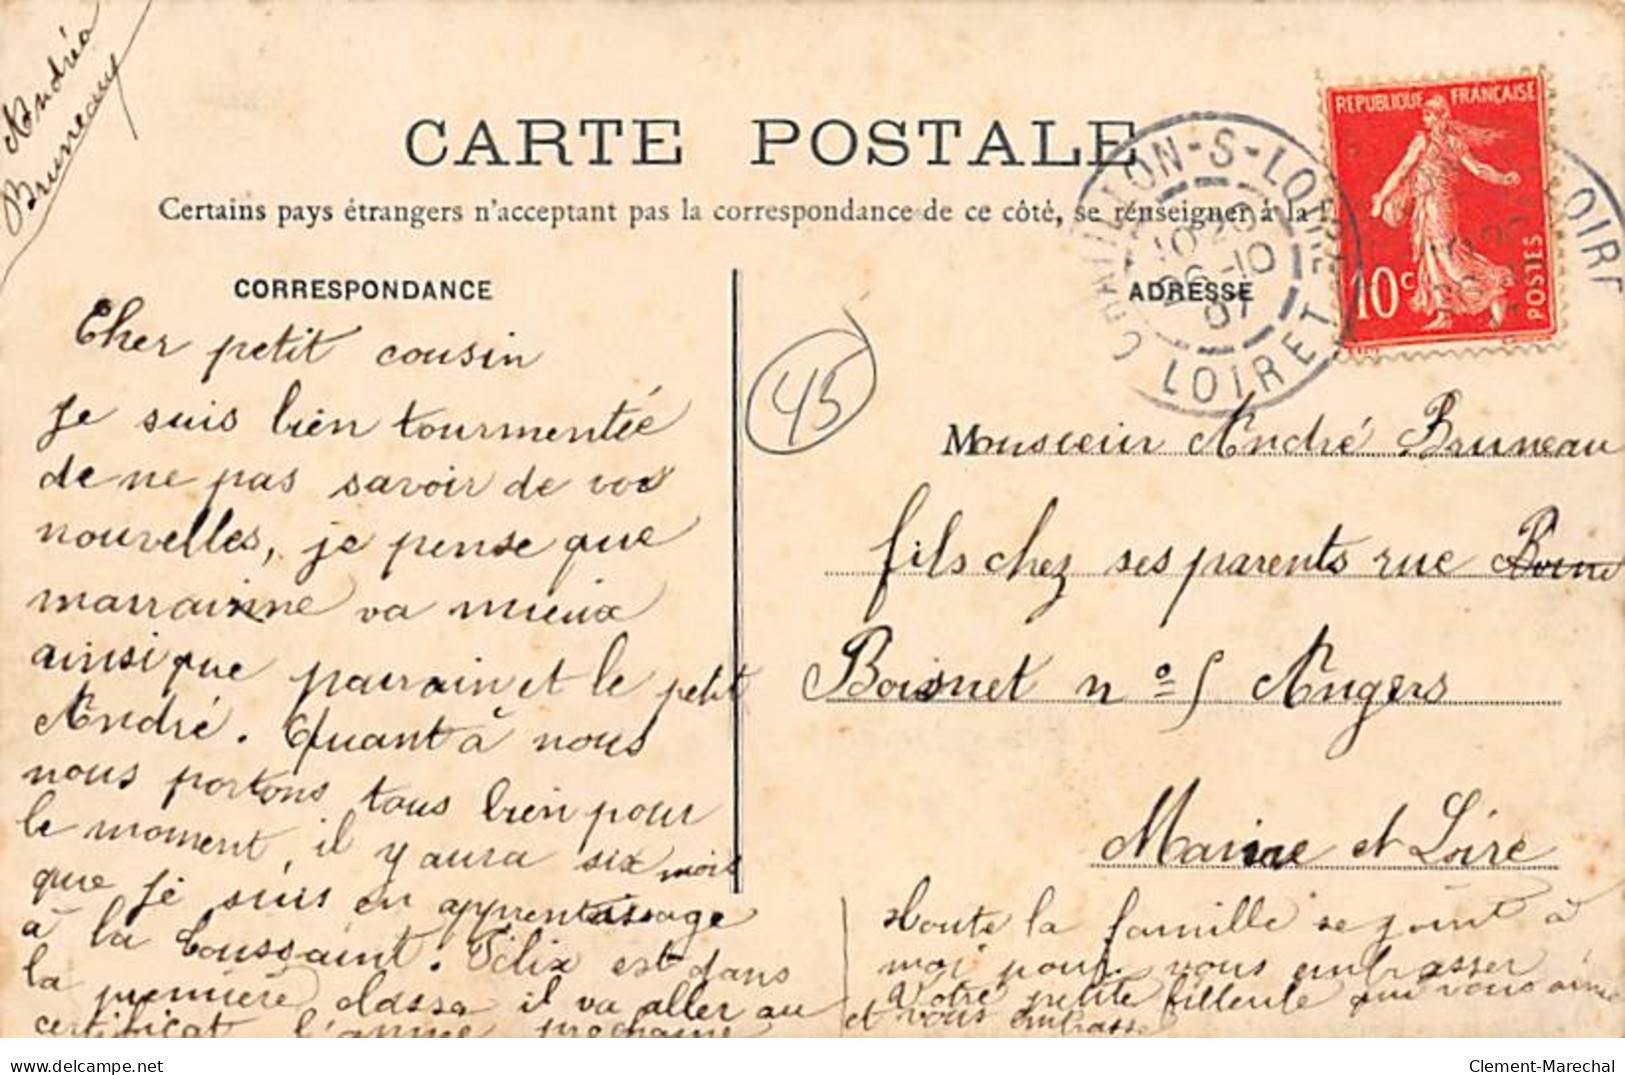 Andréa
Bruneau
CARTE POSTALE
Certains pays étrangers n'acceptant pas la correspondance de ce côté, se renseigner à la
CORRESPONDANCE
ADRESSE
REPUBLIQUE FRANÇAISE
10c
POSTES
CHATILLON-S-LOIRE
10 20
26-10
07
LOIRET
LOIRE
45
Cher petit cousin
Je suis bien tourmentée
de ne pas savoir de vos
nouvelles, je pense que
marrainne va mieux
ainsi que parrain et le petit
André. Quant à nous
nous portons tous bien pour
le moment, il y aura six mois
que je suis en apprentissage
à la Toussaint. Félix est dans
la première classe il va aller au
certificat l'année prochaine
Monsieur André Bruneau
fils chez ses parents rue
Boisnet n° 5 Angers
Maine et Loire
Toute la famille se joint à
moi pour vous embrasser
Votre petite filleule qui vous aime
et vous embrasse
delcampe.net
Clement-Marechal